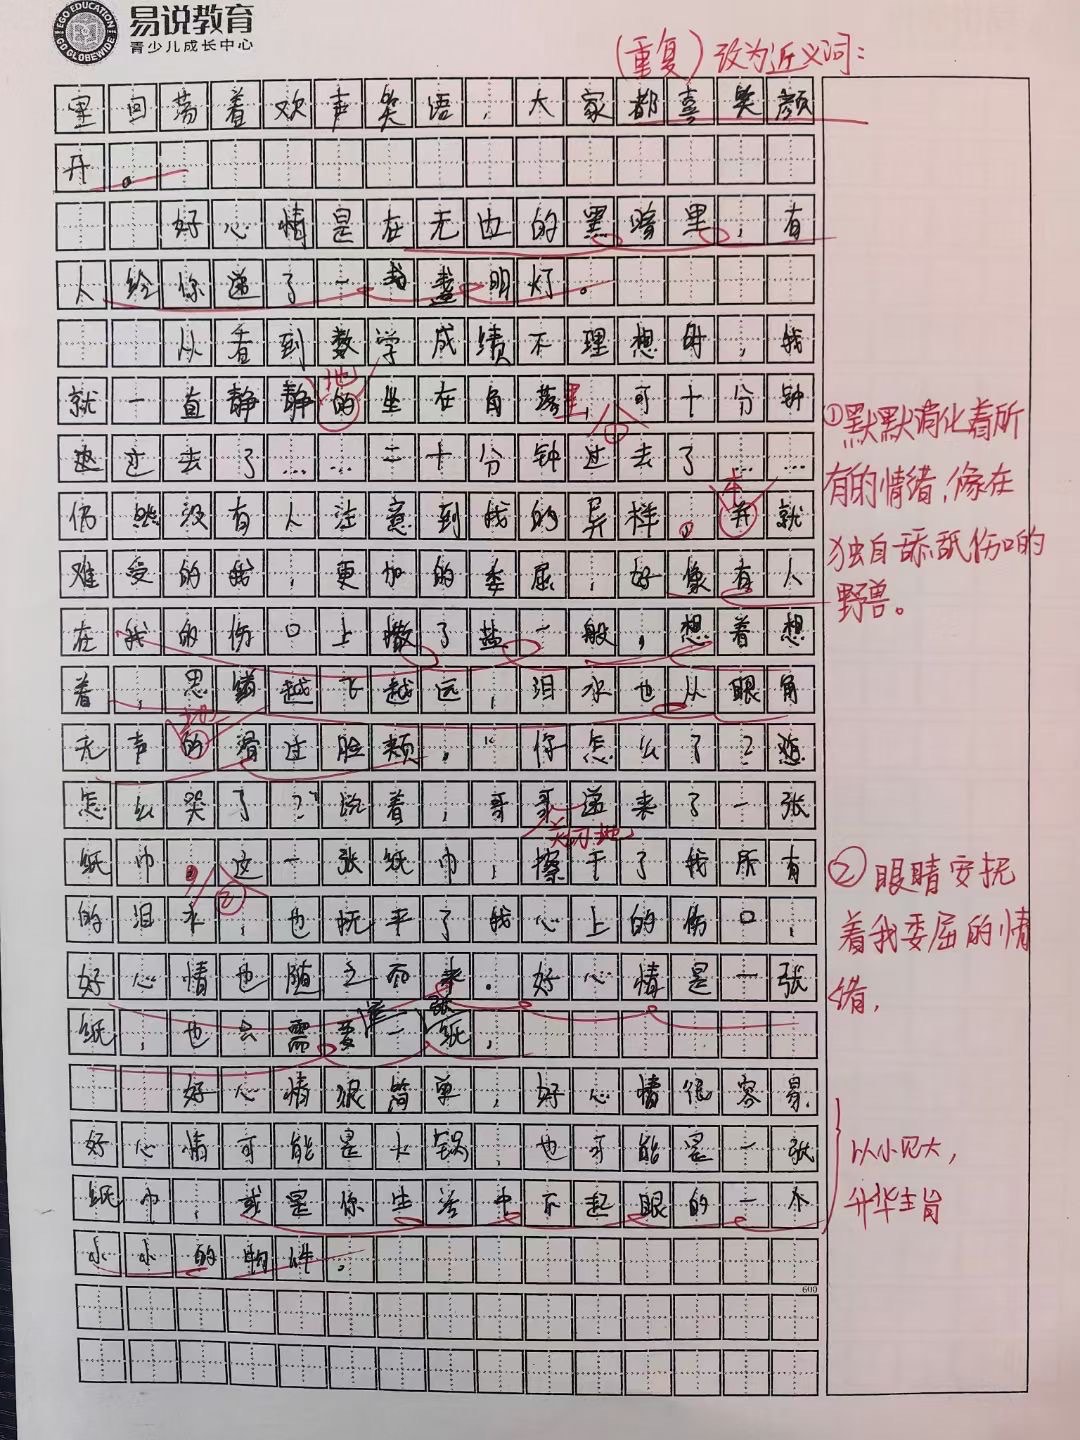 EGO EDUCATION
GO GLOBEWIDE
易说教育
青少儿成长中心
(重复)改为近义词:
里回荡着欢声笑语,大家都喜笑颜
开。
好心情是在无边的黑暗里,有
人给你递了一盏明灯。
从看到数学成绩不理想时,我
就一直静静的坐在角落里,可十分钟
地
①
过去了……二十分钟过去了……
仍然没有人注意到我的异样。就
本
难受的我,更加的委屈,好像有人
在我的伤口上撒了盐一般,想着想
着,思绪越飞越远,泪水也从眼角
无声的滑过脸颊。“你怎么了?
地
怎么哭了?”说着,哥哥递来了一张
关切地
纸巾。这一张纸巾,擦干了我所有
②
的泪水,也抚平了我心上的伤口,
好心情也随之而来。好心情是一张
纸,也会需要一张纸,
好心情很简单,好心情很容易,
好心情可能是火锅,也可能是一张
纸巾,或是你生活中不起眼的一个
小小的物件。
600
①默默消化着所
有的情绪,像在
独自舔舐伤口的
野兽。
②眼睛安抚
着我委屈的情
绪,
以小见大,
升华主旨